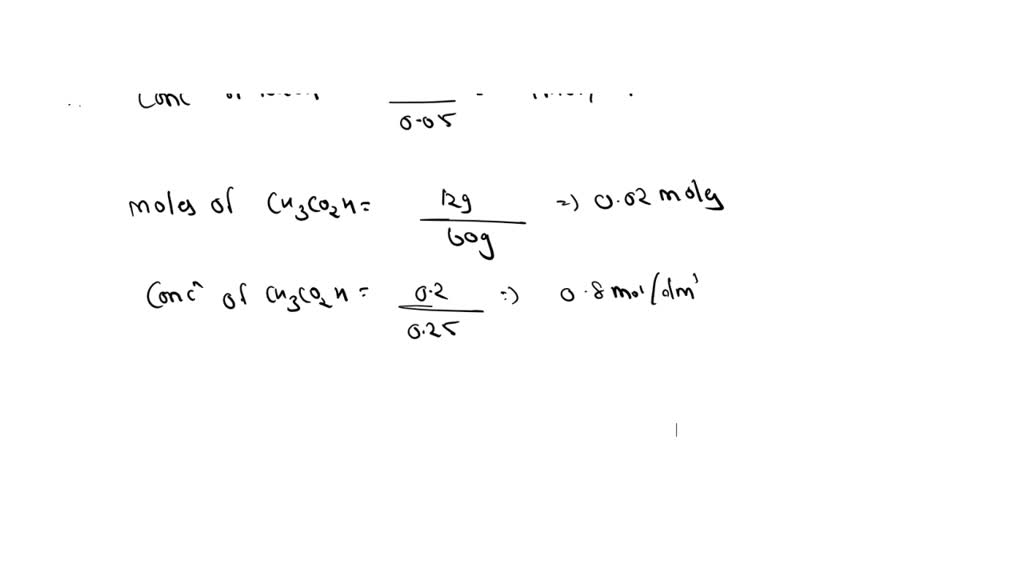 Conc of
0.05
moles of CH3CO2H = 12g / 60g => 0.02 moles
Conc^n of CH3CO2H = 0.2 / 0.25 => 0.8 mol/dm³